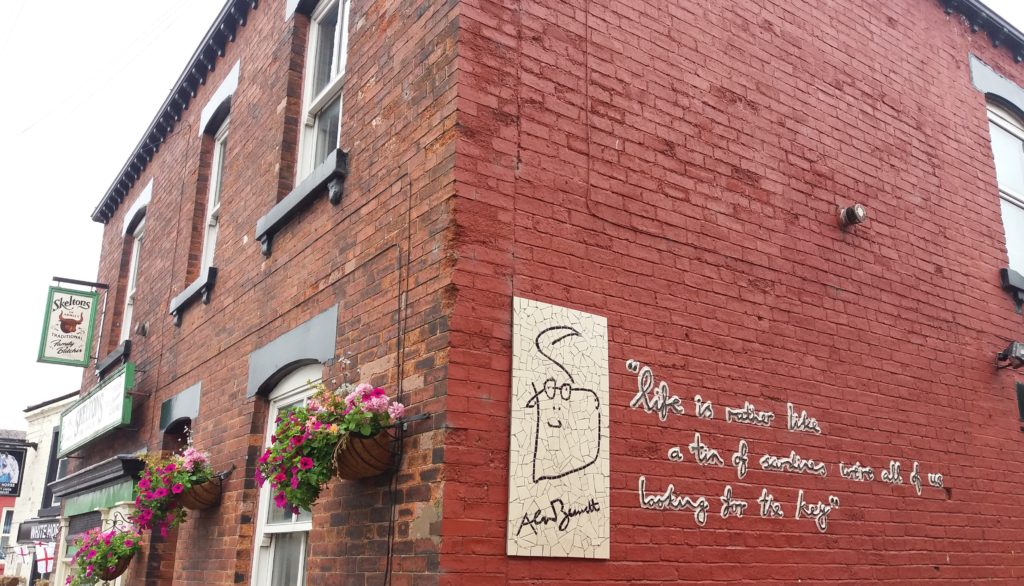 Skeltons
OF ARMLEY
TRADITIONAL
Family
Butcher
SKELTONS
WHITE HOR
"life is rather like
a tin of sardines we're all of us
looking for the key"
Alan Bennett